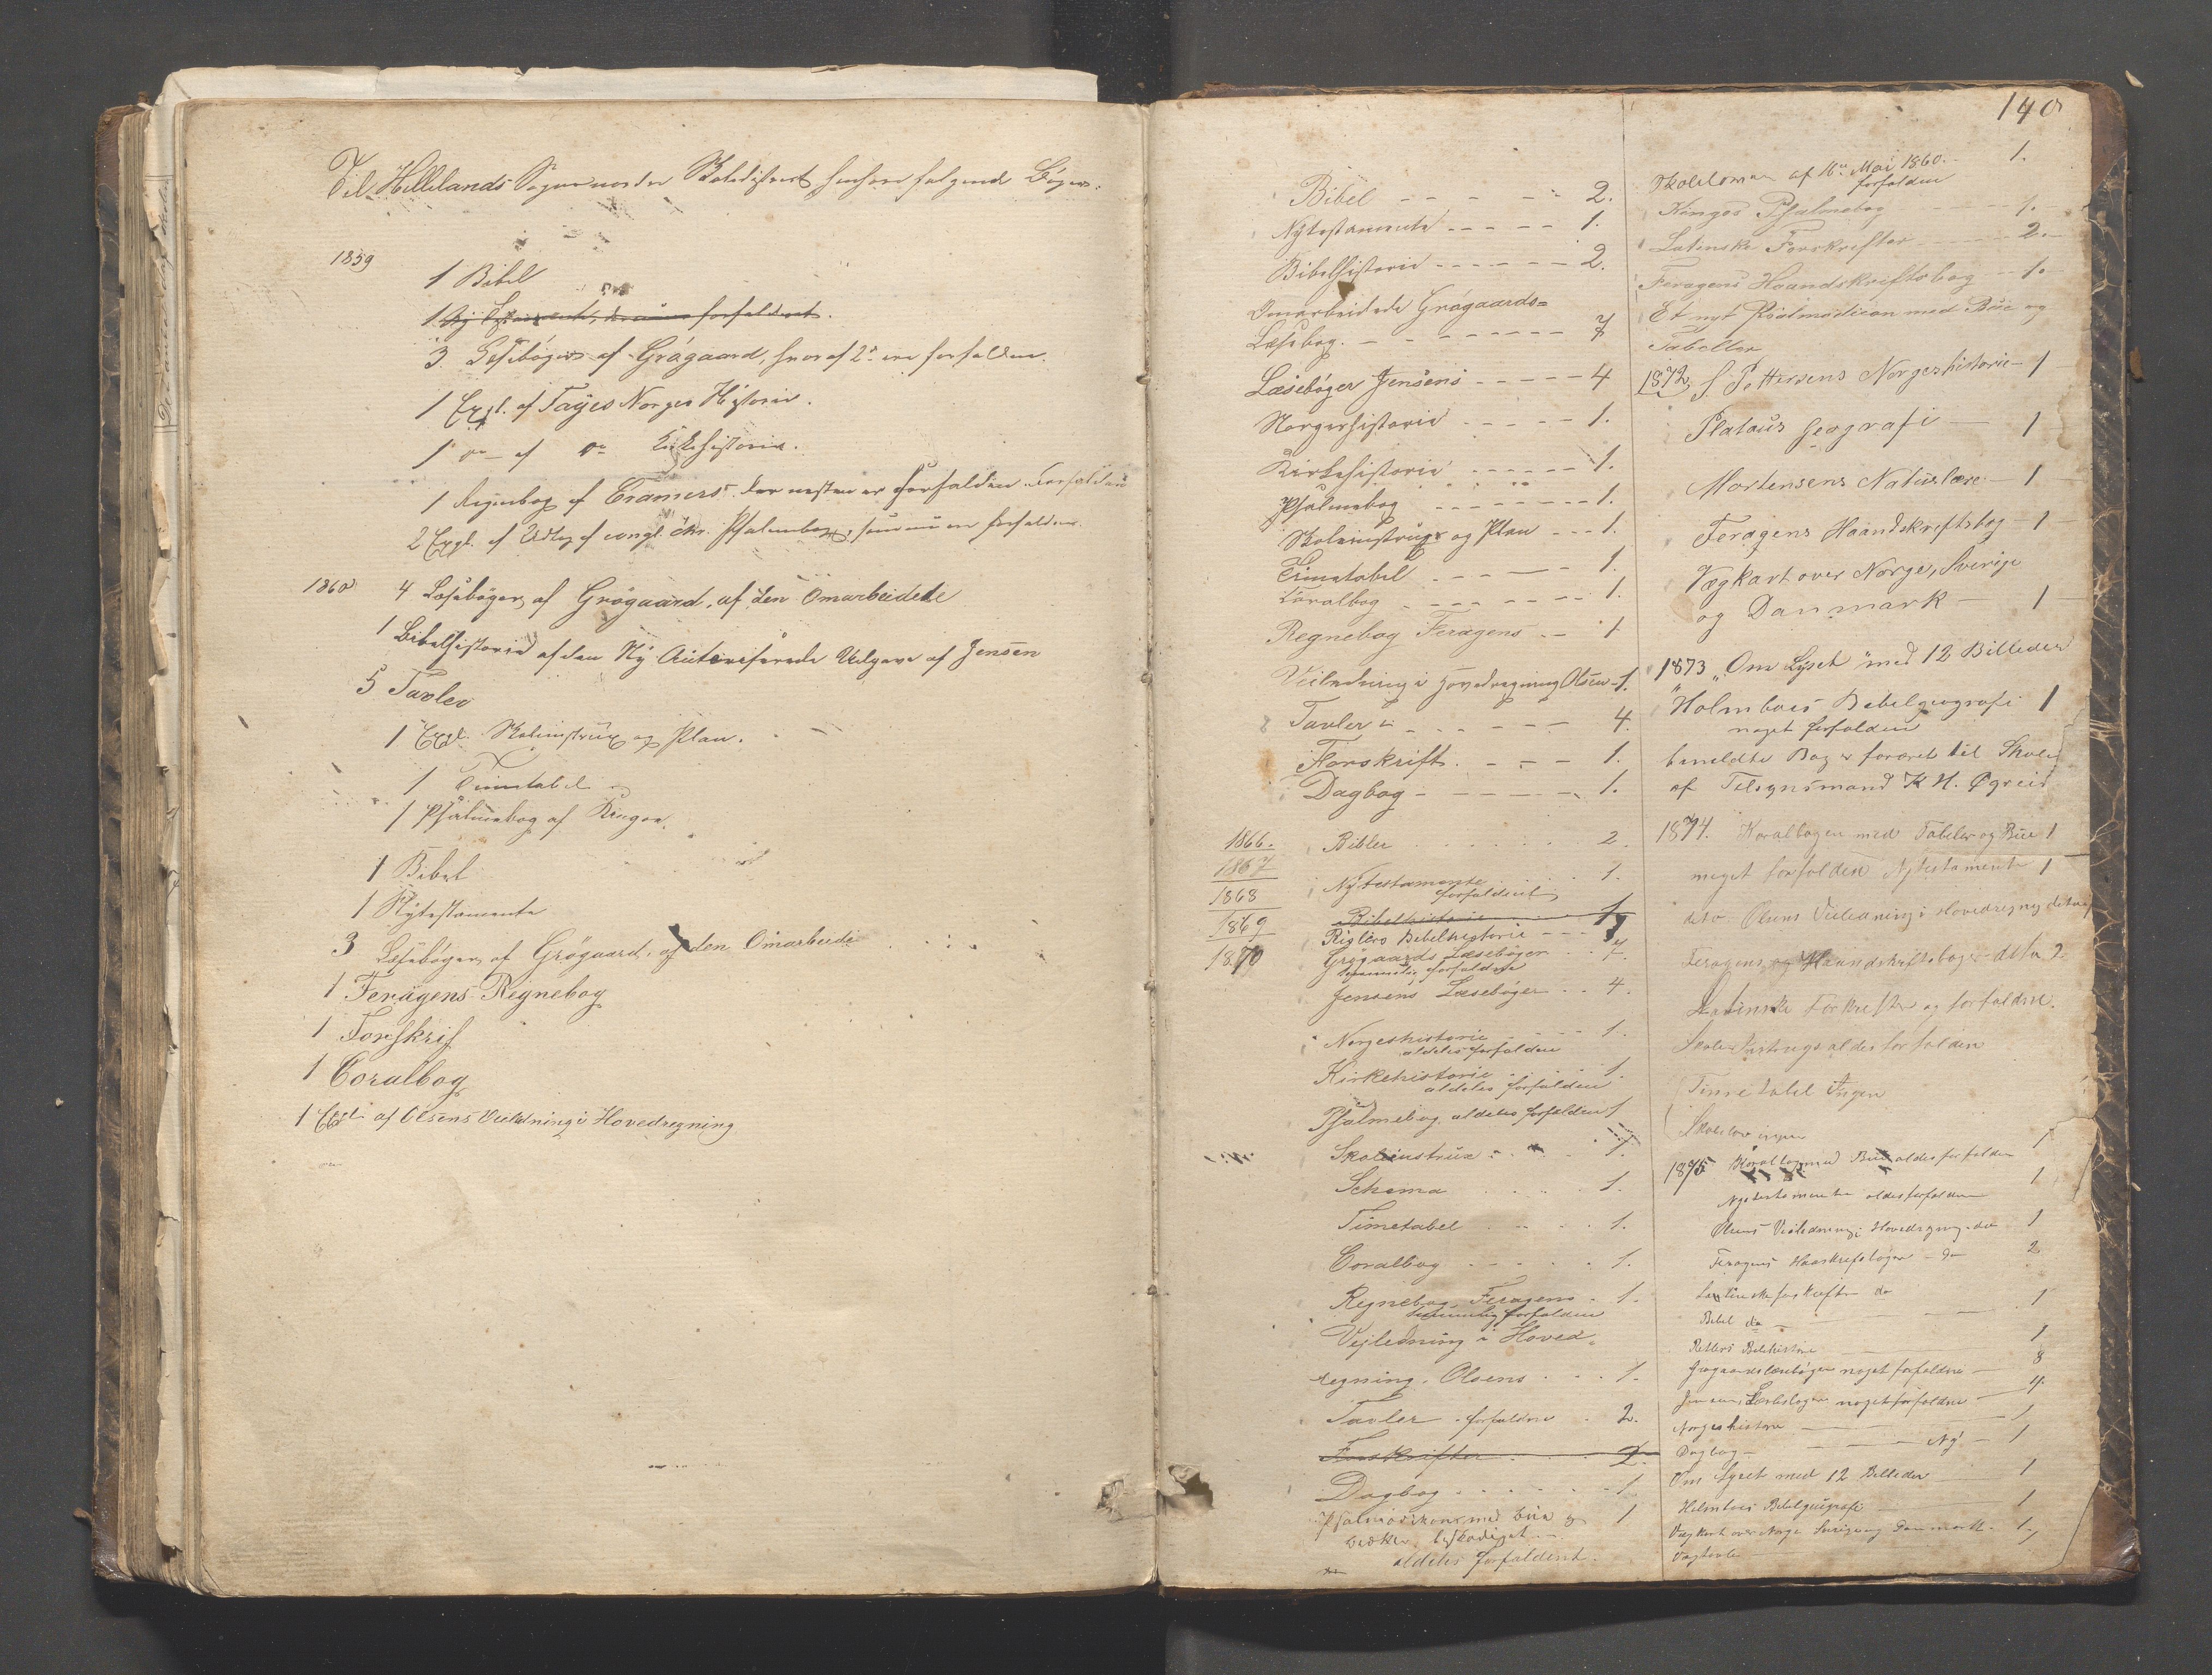 Til Hellelands Sogns nordre Skoledistrict henhøre følgende Bøger:
1859
1 Bibel
1 Ny Testamente, forfaldent.
3. Læsebøger af Grøgaard, hvoraf 2de ere forfaldne.
1 Expl. af Fayes Norges Historie.
1 do af do Kirkehistorie.
1 Regnebog af Cramers der næsten er forfalden. Forfalden
2 Expl. af Udtog af evangl. chr. Psalmebog, som nu ere forfaldne.
1860 4 Læsebøger af Grøgaard, af den Omarbeidede
1 Bibelhistorie af den Ny Autoriserede Udgave af Jensen
5 Tavler
1 Expl. Skoleinstrux og Plan.
1 Timetabel
1 Psalmebog af Kingos.
1 Bibel
1 Nytestamente
3 Læsebøger af Grøgaard, af den Omarbeide
1 Feragens Regnebog
1 Forskrif
1 Coralbog
1 Expl af Olsens Veiledning i Hovedregning
140
Bibel 2.
Nytestamente 1.
Bibelhistorie 2.
Omarbeidede Grøgaards=
Læsebog. 7
Læsebøger Jensens 4
Norgeshistorie 1.
Kirkehistorie 1.
Psalmebog 1.
Skoleinstrux og Plan 1.
Timetabel 1.
Coralbog 1.
Regnebog Feragens 1
Veiledning i Hovedregning Olsen 1.
Tavler 4.
Forskrift. 1.
Dagbog 1.
1866. Bibler 2.
1867
1868 Nytestamente 1.
forfaldent
1869 Bibelhistorie 1
Riglers Bebelhistorie 1
1870 Grøgaards Læsebøger 7.
temmelig forfaldne
Jensens Læsebøger 4.
Norgeshistorie 1.
aldeles forfalden
Kirkehistorie 1.
aldeles forfalden
Psalmebog. aldeles forfalden 1
Skoleinstrux 1.
Schema 1.
Timetabel 1.
Coralbog 1.
Regnebog Feragens 1.
temmelig forfalden
Vejledning i Hoved=
regning. Olsens 1.
Tavler forfaldne 2.
Forskrifter 2.
Dagbog 1.
Psalmodikon med bue og 1
beskadiget
aldeles forfaldent.
Skoleloven af 16de Mai 1860. 1.
forfalden
Kingos Psalmebog 1.
Latinske Forskrifter 2.
Feragens Haandskriftsbog 1.
Et nyt Psalmodicon med Bue og
Tabeller
1872 S. Pettersens Norgeshistorie 1
Plataus Geografi 1
Mortensens Naturlære 1
Feragens Haandskriftsbog 1
Vægkart over Norge, Sverige
og Danmark 1
1873 „Om Lyset" med 12 Billeder
" Holmboes Bebelgeografi 1
noget forfalden
bemeldte Bog er foræret til Skolen
af Tilsynsmand K H. Øgreid
1874. Koralbogen med Tabeler og Bue 1
meget forfalden Nytestamente 1
dito Olsens Veiledning i Hovedregning
Feragens Haandskriftsboger ditto 2
Latinske Forskrifter og forfaldne.
Skole Instrugs aldes forfalden
Timetabel Ingen
Skolelov ingen
1875 Koralbog med Bue aldes forfalden 1
Nytestamente aldes forfalden 1
Olsens Veiledning i Hovedregning do 1
Feragens Haaskriftsboger do 2
Latinske forskrifter do
Bibel do 1
Bibelhistorie 1
Grøgaards læsebøger noget forfaldne 8
Jensens Læsebøger noget forfaldne 4
Norgeshistorie 1
Dagbog Ny 1
Om Lyset med 12 Billeder 1
Holmboes Bibelgeografi 1
Vægkart over Norge Sverige og Danmark. 1
Vægtavle